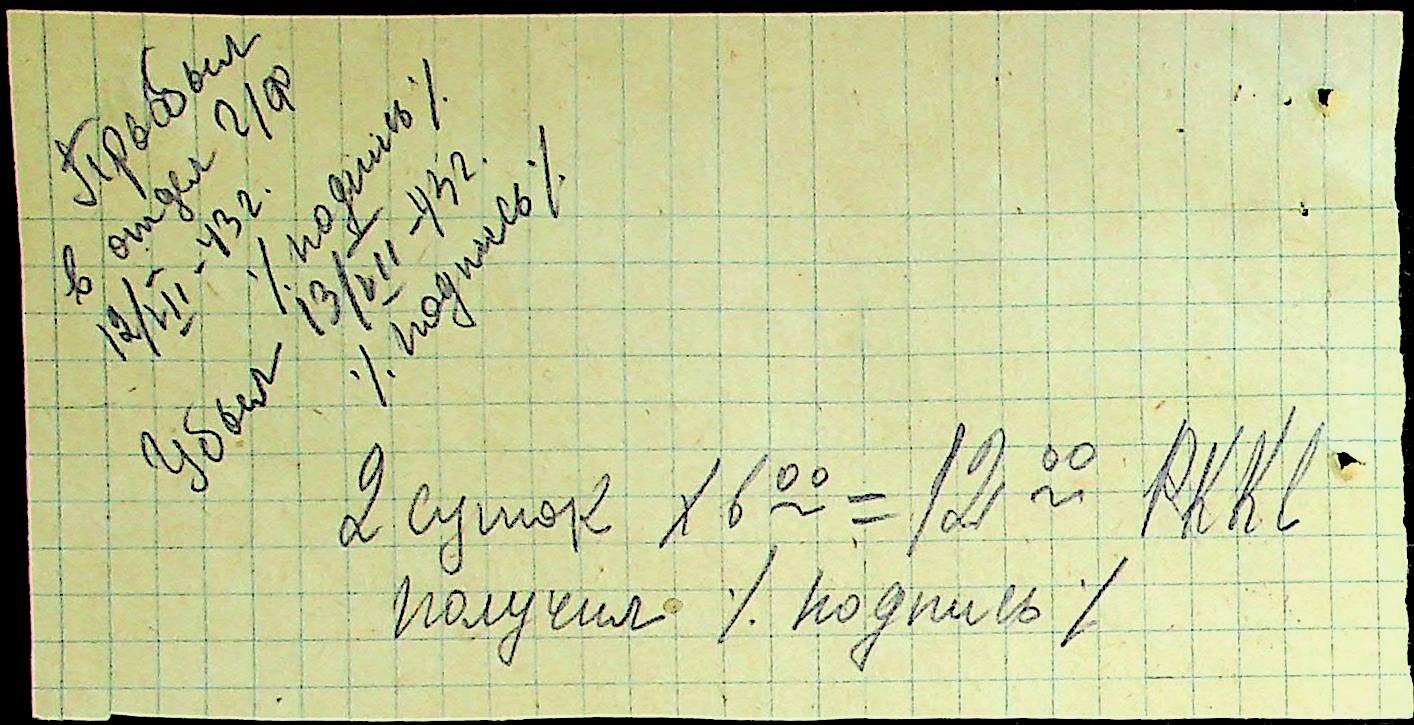 Прибыл
в отдел г/ф
12/VII-43 г.
/. подпись /.
Убыл 13/VII-43 г.
/. подпись /.
2 суток х 6 00 = 12 00 РККС
получил /. подпись /.